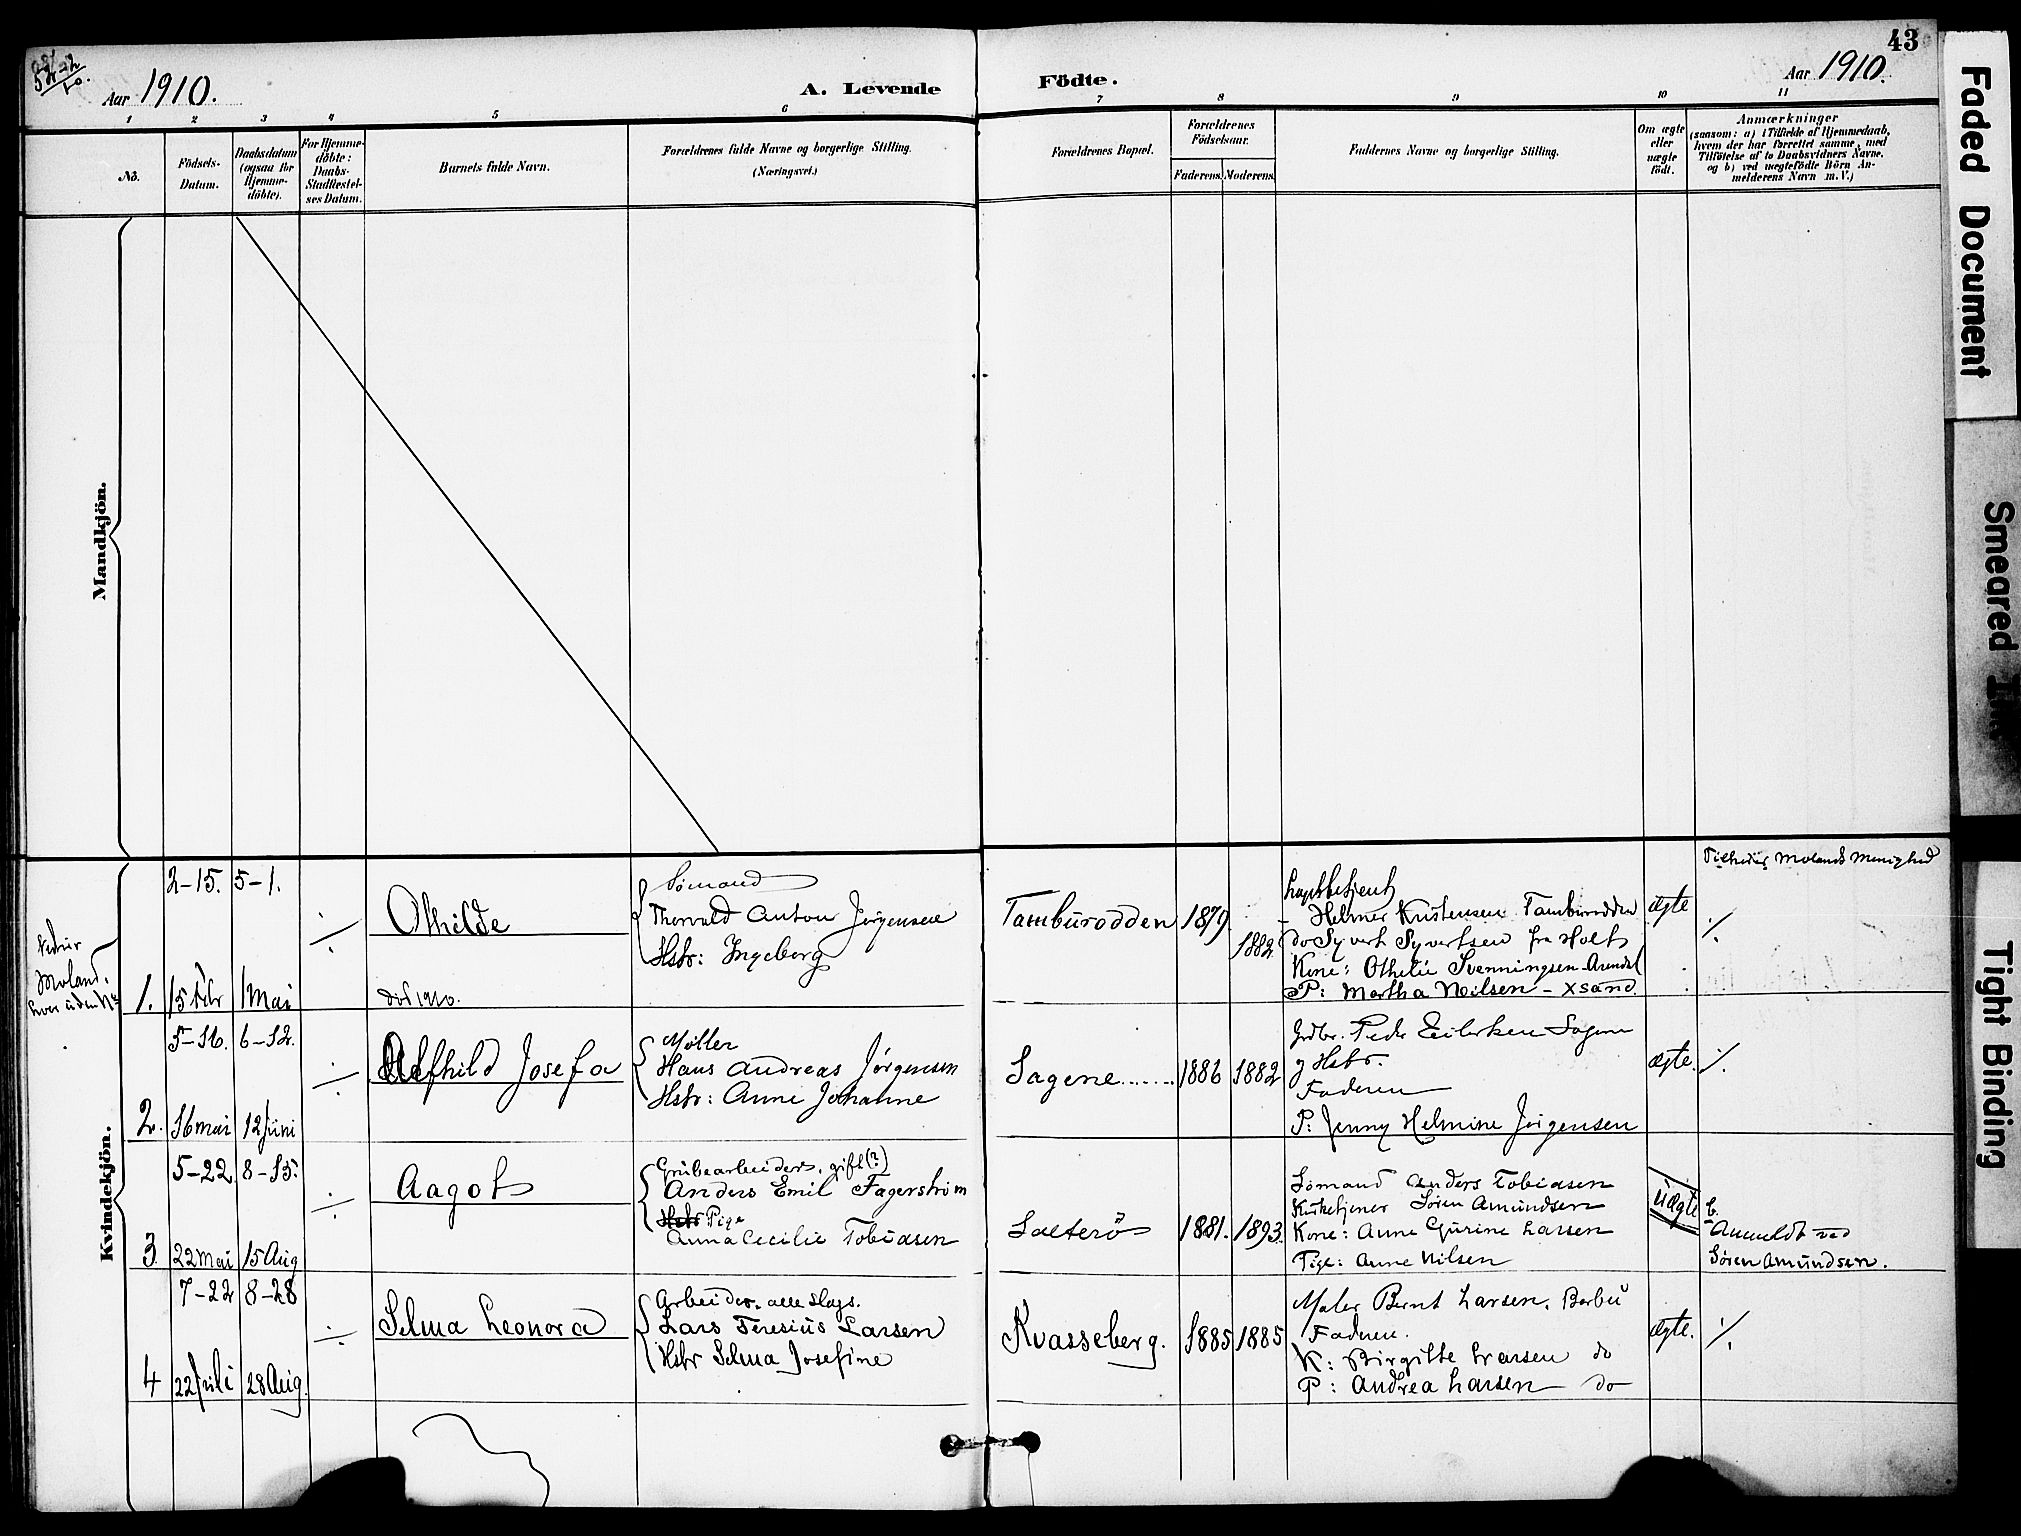 43
Aar 1910.
A. Levende
Födte.
Aar 1910.
1 2 3 4 5 6 7 8 9 10 11
No.
Födsels-
Datum.
Daabsdatum
(ogsaa for
Hjemme-
döbte).
For Hjemme-
döbte:
Daabs-
Stadfestel-
ses Datum.
Barnets fulde Navn.
Forældrenes fulde Navne og borgerlige Stilling.
(Næringsvei.)
Forældrenes Bopæl.
Forældrenes
Födselsaar.
Faderens.
Moderens.
Faddernes Navne og borgerlige Stilling.
Om ægte
eller
uægte
födt.
Anmærkninger
(saasom: a) i Tilfælde af Hjemmedaab,
hvem der har forrettet samme, med
Tilföielse af to Daabsvidners Navne,
og b) ved uægtefödte Börn An-
melderens Navn m. V.)
Mandkjön.
Kvindekjön.
Moland.
1.
2-15.
15 Febr
5-1.
1 Mai
Othilde
Död 1910.
Sømand
Thorvald Anton Jørgensen
Hstr: Ingeborg
Tamburodden
1879
1882
Helmer Kristensen Tamburodden
do Syvert Syvertsen fra Holt
Kone: Othelie Svenningsen Arendal
P: Martha Nilsen - Xsand.
ægte
Molands Menighed
2.
5-16.
16 mai
6-12.
12 juni
Alfhild Josefa
Møller
Hans Andreas Jørgensen
Hstr: Anne Johanne
Sagene
1886
1882
Peder Eilertsen Sagene
g Hstr.
Faderen
P: Jenny Helmine Jørgensen
ægte.
3.
5-22
22 Mai
8-15.
15 Aug
Aagot
Grubearbeider, gift(?)
Anders Emil Fagerstrøm
Hstr Pige
Anna Cecilie Tobiasen
Salterø
1881.
1893.
Sømand Anders Tobiasen
Kirketjener Søren Amundsen
Kone: Anne Gurine Larsen
Pige: Anne Nilsen
Uægte
b.
Anmeldt ved
Søren Amundsen.
4
7-22
22 juli
8-28
28 Aug.
Selma Leonora
Arbeider. alle slags.
Lars Teresius Larsen
Hstr Selma Josefine
Kvasseberg.
1885
1885
Maler Bernt Larsen, Barbu
Faderen.
K: Birgitte Larsen do
P: Andrea Larsen do
ægte.
Faded Document
Smeared Ink
Tight Binding